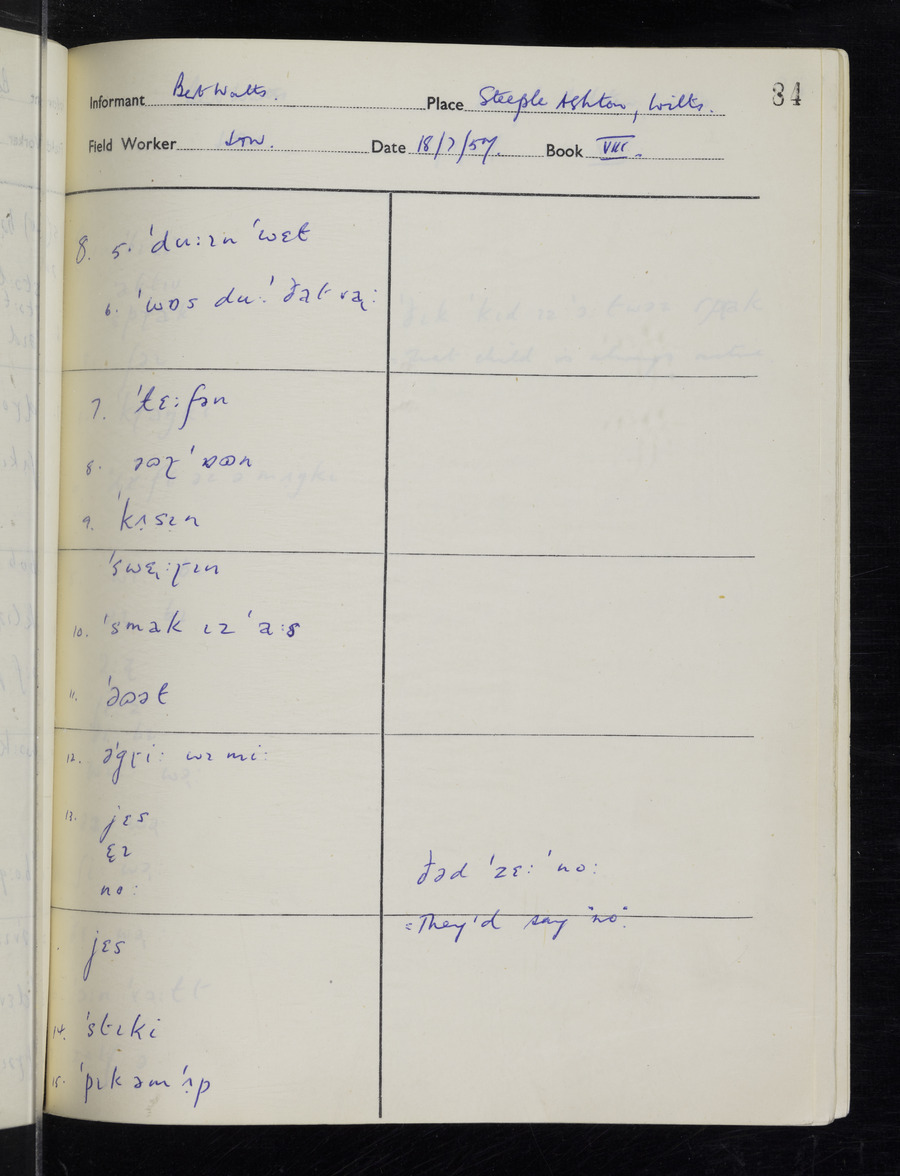 34
Informant Bert Watts. Place Steeple Ashton, Wilts.
Field Worker Date 18/7/57. Book VIII.
8. 5. ˈduːɪn ˈwɛt
6. ˈwɒs duːˈ ðat
7. ˈtɛːʃən
8.
9. ˈkɪ̣sɪn
10. ˈsmak ɪz ˈaːs
11.
12. əˈgɽiː wɪ miː
13. jɛs
no:
ðəd ˈzɛː ˈnoː
= They'd say "no".
jɛs
14. ˈstɪki
15. ˈpɪk əm ˈʌp